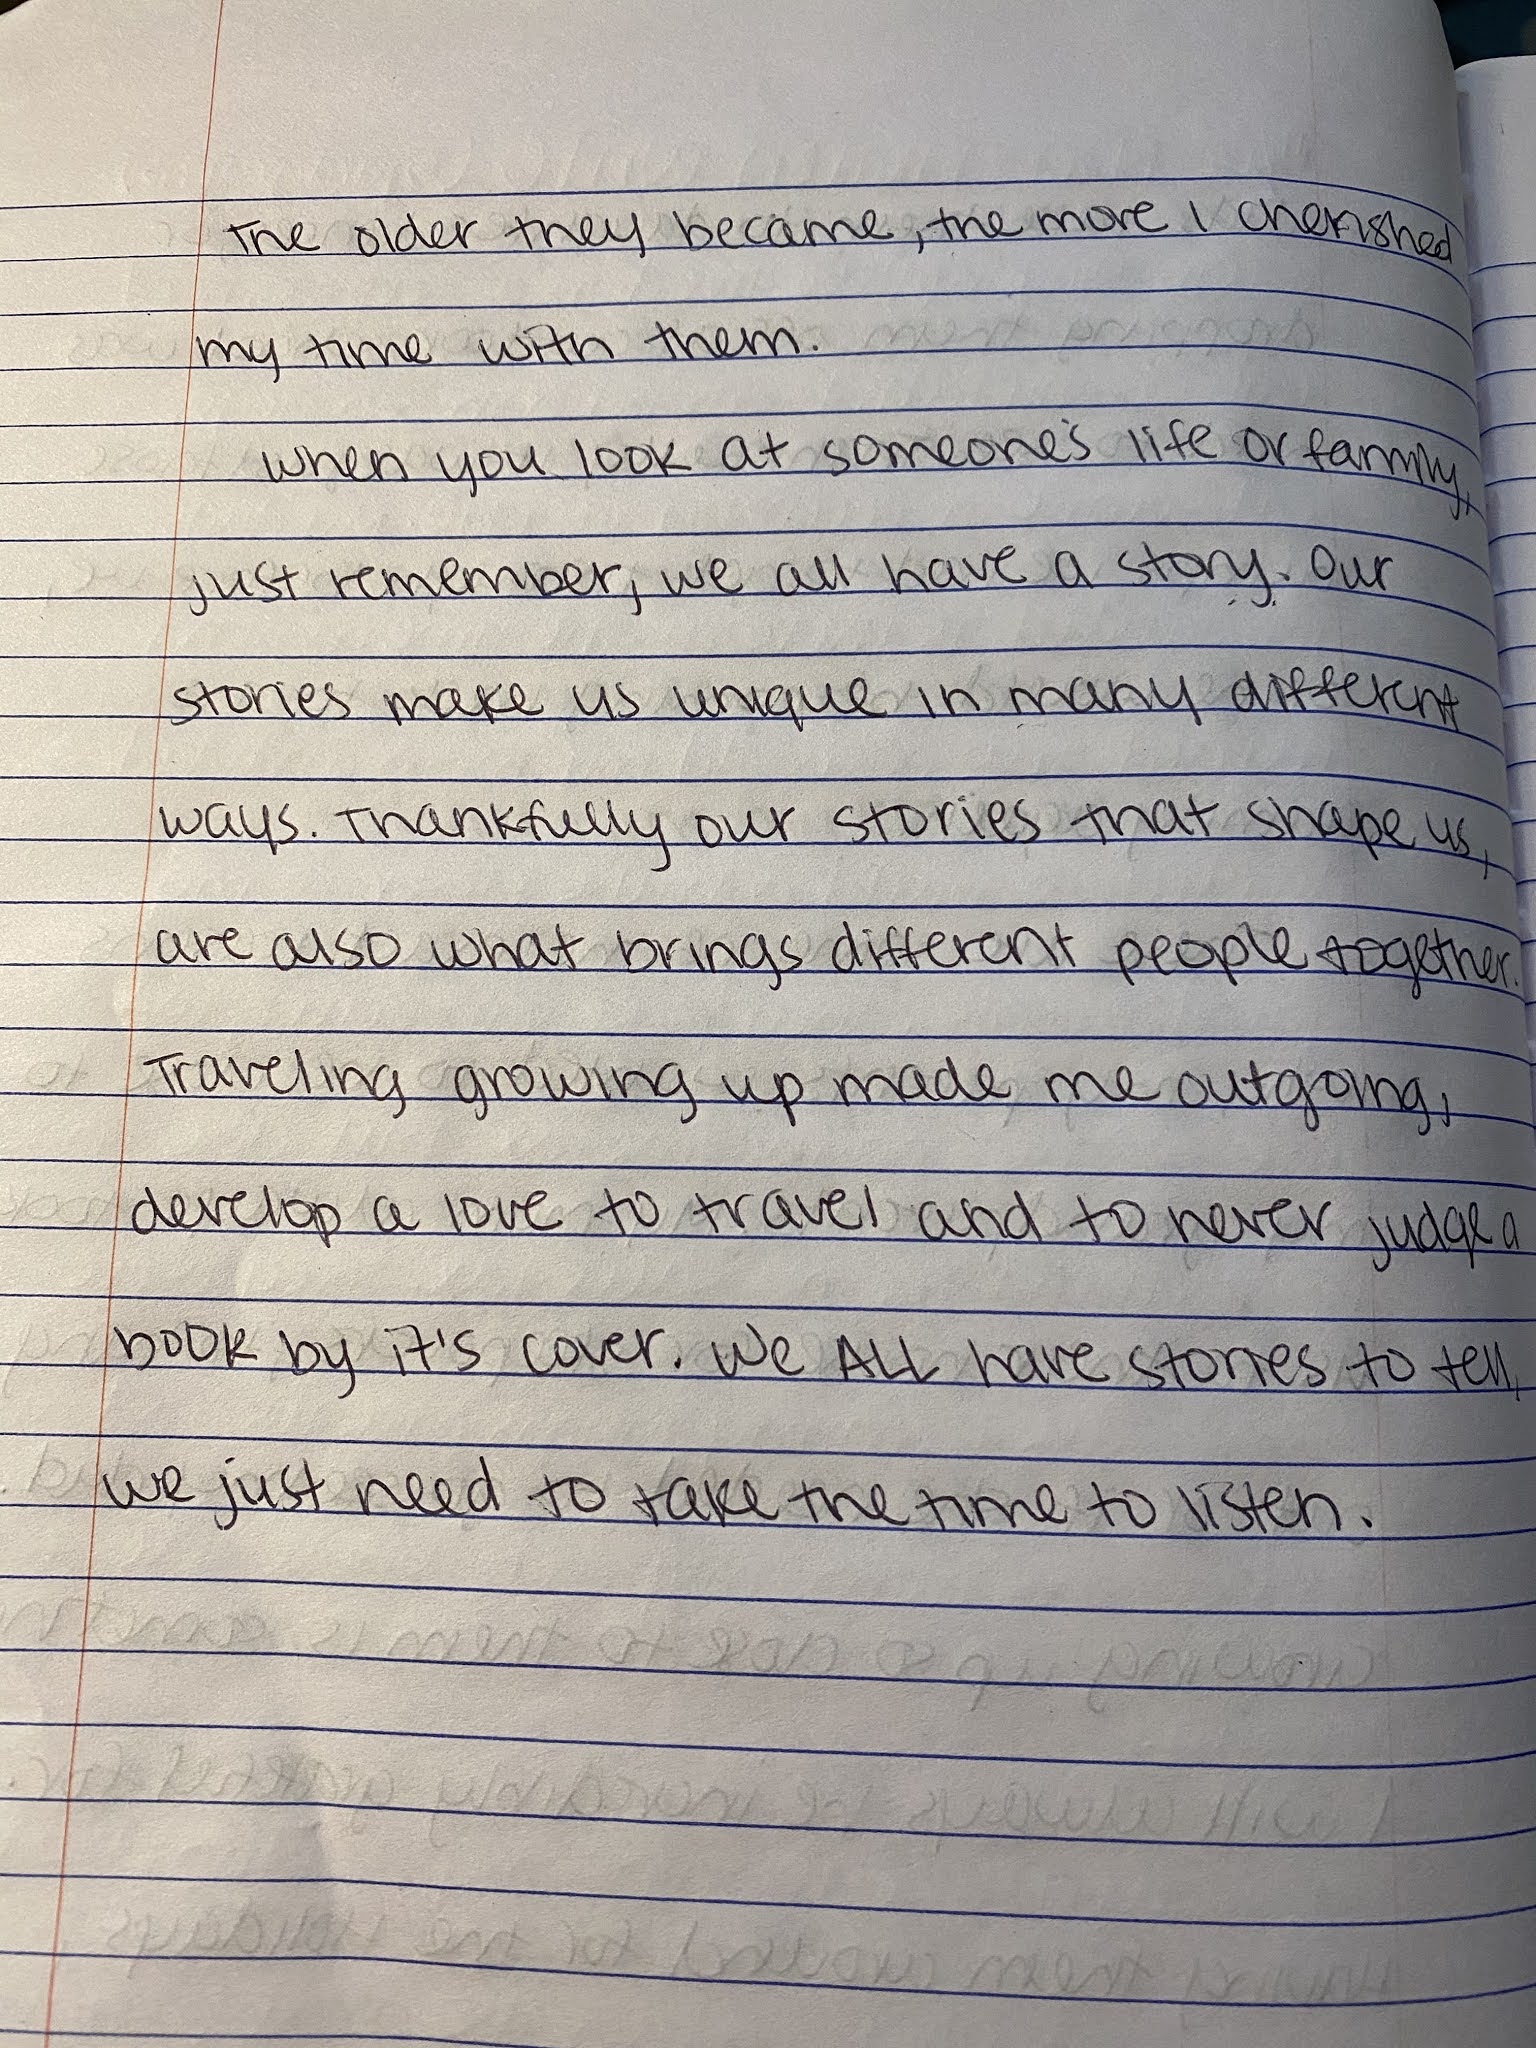 The older they became, the more I cherished
my time with them.
When you look at someone's life or family,
just remember, we all have a story. Our
stories make us unique in many different
ways. Thankfully our stories that shape us,
are also what brings different people together.
Traveling growing up made me outgoing,
develop a love to travel and to never judge a
book by it's cover. We ALL have stories to tell,
we just need to take the time to listen.